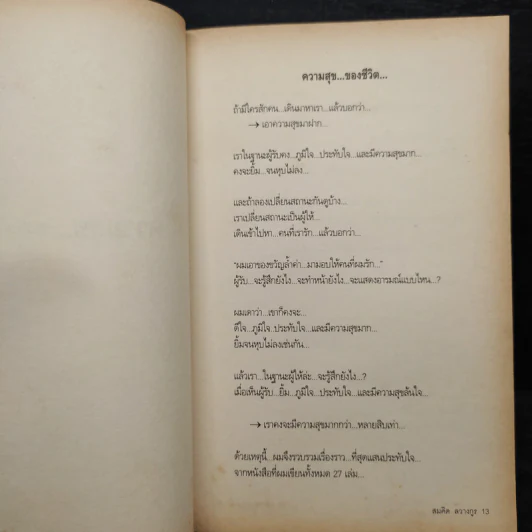 ความสุข...ของชีวิต...
ถ้ามีใครสักคน...เดินมาหาเรา...แล้วบอกว่า...
→ เอาความสุขมาฝาก...
เราในฐานะผู้รับคง...ภูมิใจ...ประทับใจ...และมีความสุขมาก...
คงจะยิ้ม...จนหุบไม่ลง...
และถ้าลองเปลี่ยนสถานะกันดูบ้าง...
เราเปลี่ยนสถานะเป็นผู้ให้...
เดินเข้าไปหา...คนที่เรารัก...แล้วบอกว่า...
"ผมเอาของขวัญล้ำค่า...มามอบให้คนที่ผมรัก..."
ผู้รับ...จะรู้สึกยังไง...จะทำหน้ายังไง...จะแสดงอารมณ์แบบไหน...?
ผมเดาว่า...เขาก็คงจะ...
ดีใจ...ภูมิใจ...ประทับใจ...และมีความสุขมาก...
ยิ้มจนหุบไม่ลงเช่นกัน...
แล้วเรา...ในฐานะผู้ให้ล่ะ...จะรู้สึกยังไง...?
เมื่อเห็นผู้รับ...ยิ้ม...ภูมิใจ...ประทับใจ...และมีความสุขล้นใจ...
→ เราคงจะมีความสุขมากกว่า...หลายสิบเท่า...
ด้วยเหตุนี้...ผมจึงรวบรวมเรื่องราว...ที่สุดแสนประทับใจ...
จากหนังสือที่ผมเขียนทั้งหมด 27 เล่ม...
สมคิด ลวางกูร 13